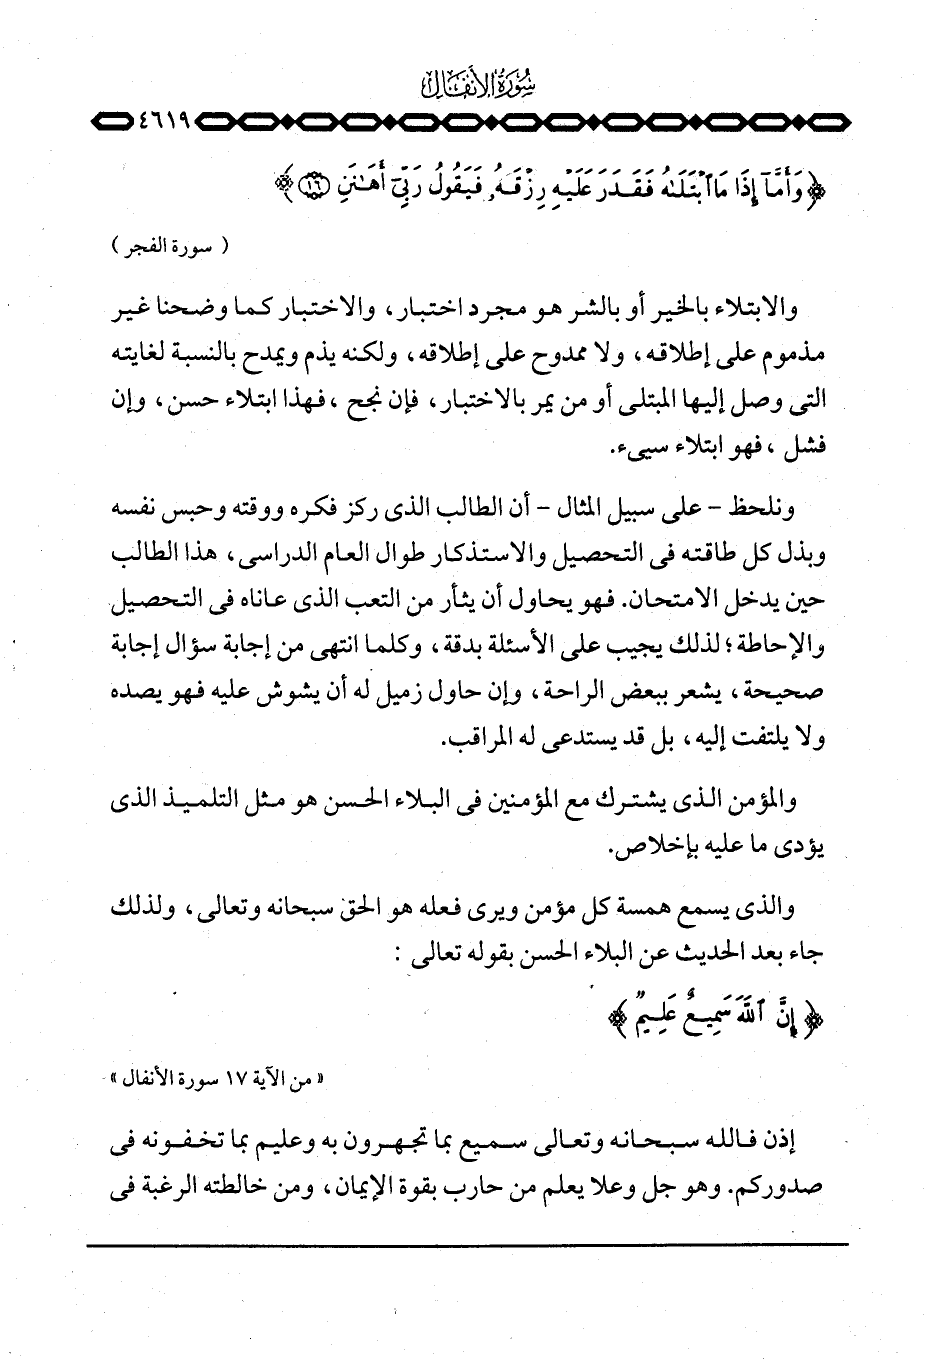 سورة الأنفال
٤٦١٩
﴿ وَأَمَّآ إِذَا مَا ٱبْتَلَىٰهُ فَقَدَرَ عَلَيْهِ رِزْقَهُۥ فَيَقُولُ رَبِّىٓ أَهَٰنَنِ ١٦ ﴾
( سورة الفجر )
والابتلاء بالخير أو بالشر هو مجرد اختبار، والاختبار كما وضحنا غير
مذموم على إطلاقه، ولا ممدوح على إطلاقه، ولكنه يذم ويمدح بالنسبة لغايته
التى وصل إليها المبتلى أو من يمر بالاختبار، فإن نجح ، فهذا ابتلاء حسن، وإن
فشل ، فهو ابتلاء سيىء.
ونلحظ - على سبيل المثال - أن الطالب الذى ركز فكره ووقته وحبس نفسه
وبذل كل طاقته فى التحصيل والاستذكار طوال العام الدراسى، هذا الطالب
حين يدخل الامتحان. فهو يحاول أن يثأر من التعب الذى عاناه فى التحصيل
والإحاطة؛ لذلك يجيب على الأسئلة بدقة، وكلما انتهى من إجابة سؤال إجابة
صحيحة، يشعر ببعض الراحة، وإن حاول زميل له أن يشوش عليه فهو يصده
ولا يلتفت إليه، بل قد يستدعى له المراقب.
والمؤمن الذى يشترك مع المؤمنين فى البلاء الحسن هو مثل التلميذ الذى
يؤدى ما عليه بإخلاص.
والذى يسمع همسة كل مؤمن ويرى فعله هو الحق سبحانه وتعالى، ولذلك
جاء بعد الحديث عن البلاء الحسن بقوله تعالى :
﴿ إِنَّ ٱللَّهَ سَمِيعٌ عَلِيمٌ ﴾
« من الآية ١٧ سورة الأنفال »
إذن فالله سبحانه وتعالى سميع بما تجهرون به وعليم بما تخفونه فى
صدوركم. وهو جل وعلا يعلم من حارب بقوة الإيمان، ومن خالطته الرغبة فى